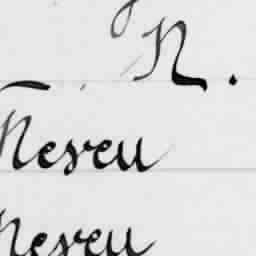 N.
Neveu
Neveu